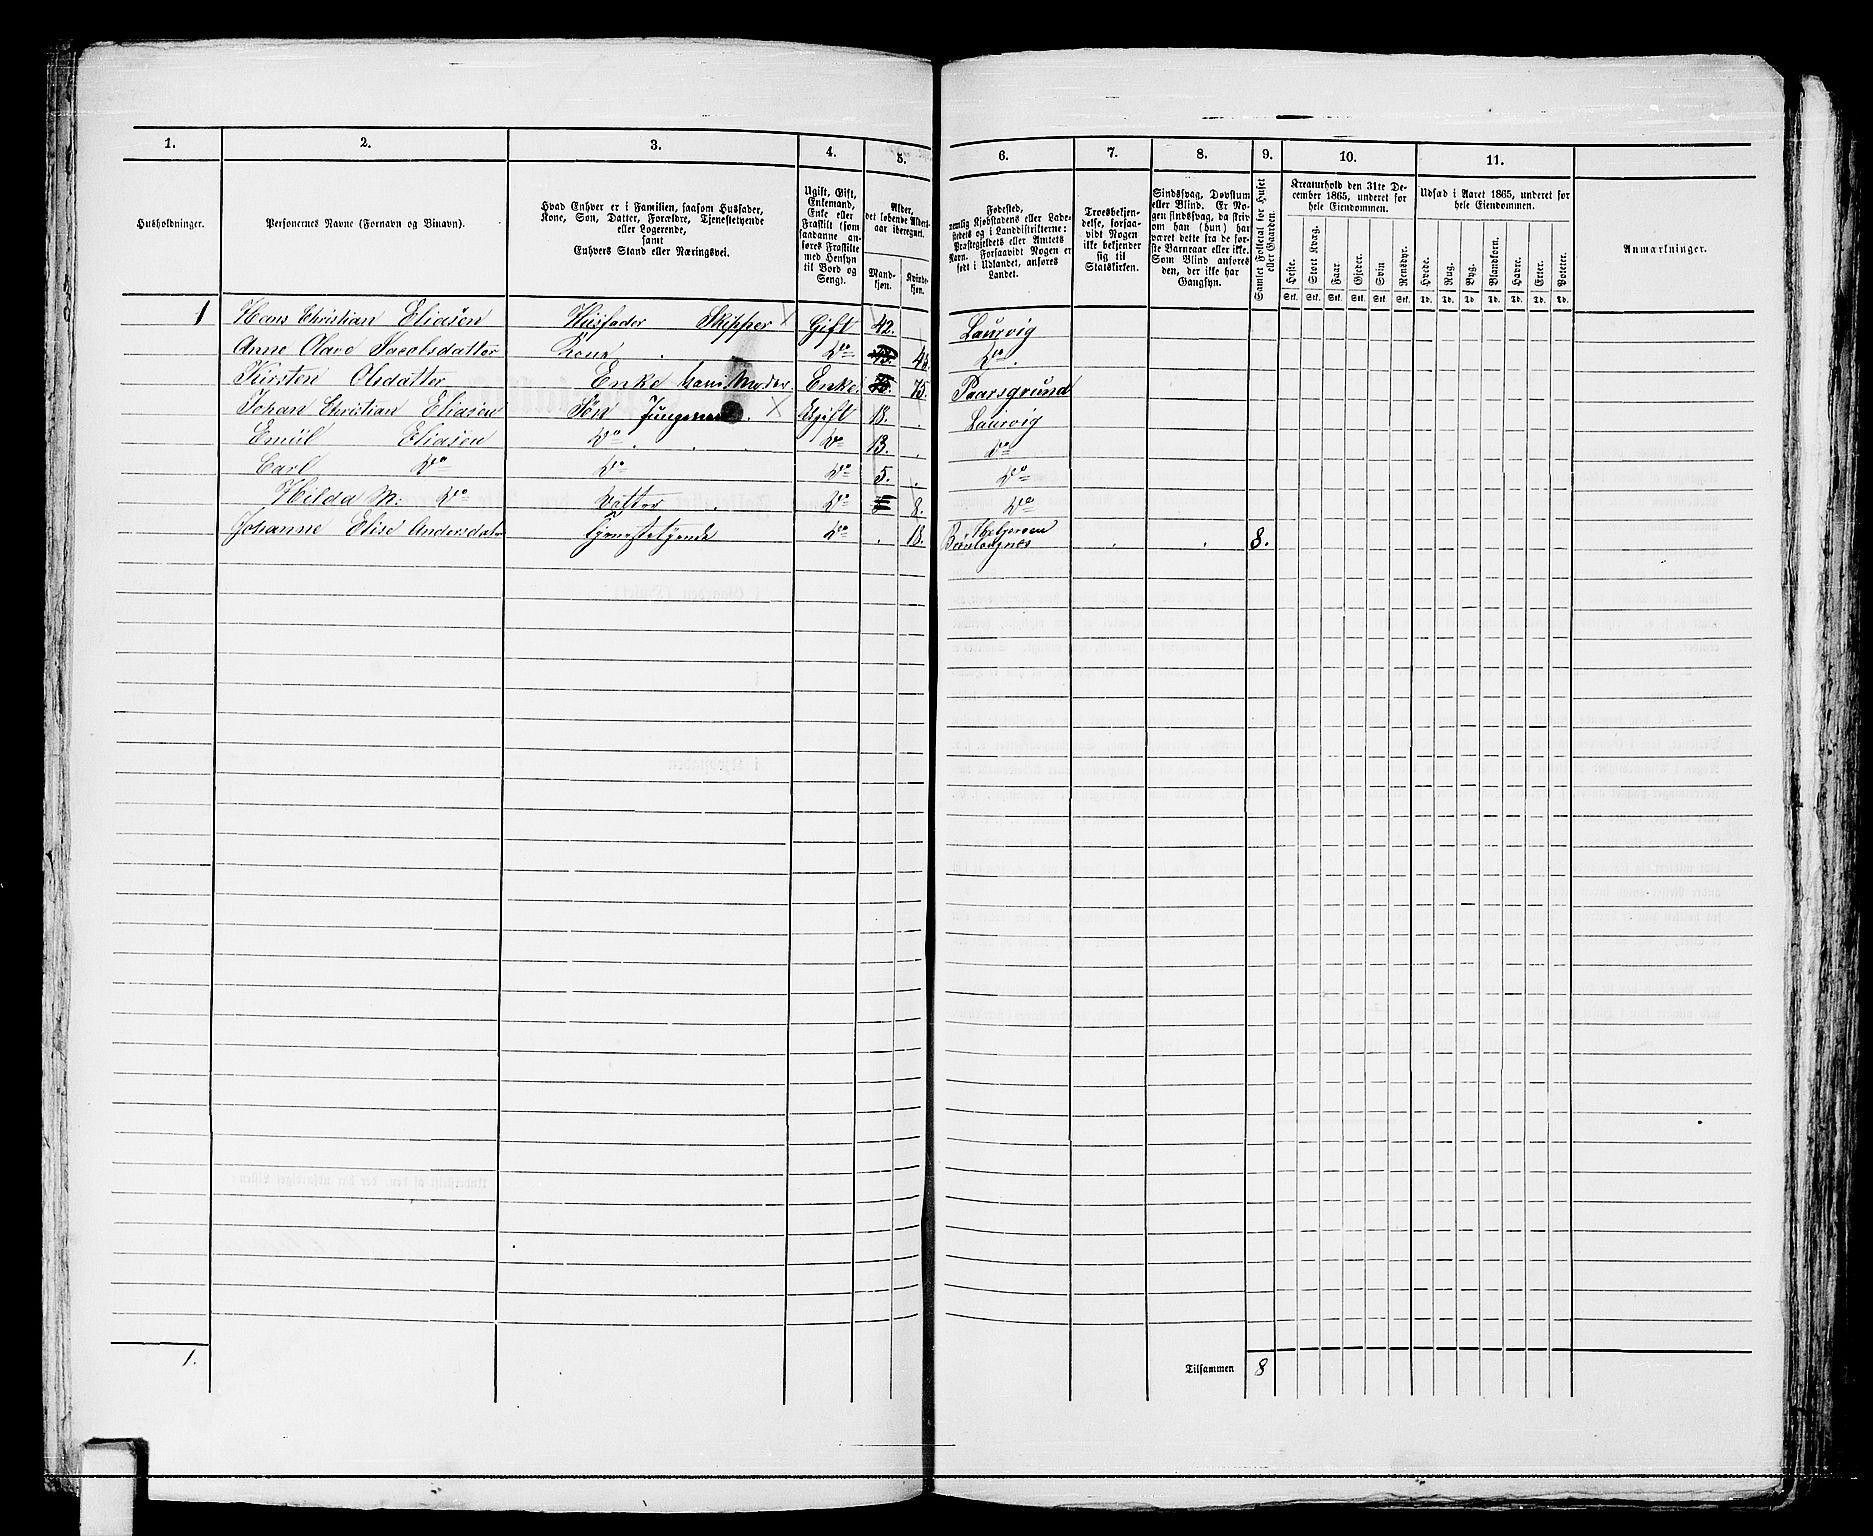 1. 2. 3. 4. 5. 6. 7. 8. 9. 10. 11.
Husholdninger.
Personernes Navne (Fornavn og Binavn).
Hvad Enhver er i Familien, saasom Husfader,
Kone, Søn, Datter, Forældre, Tjenestetyende
eller Logerende,
samt
Enhvers Stand eller Næringsvei.
Ugift, Gift,
Enkemand,
Enke eller
Fraskilt (som
saadanne an-
føres Fraskilte
med Hensyn
til Bord og
Seng).
Alder,
det løbende Alders-
aar iberegnet.
Mand-
kjøn.
Kvinde-
kjøn.
Fødested,
nemlig Kjøbstadens eller Lade-
stedets og i Landdistrikterne:
Præstegjeldets eller Amtets
Navn. Forsaavidt Nogen er
født i Udlandet, anføres
Landet.
Troesbekjen-
delse, forsaa-
vidt Nogen
ikke bekjender
sig til
Statskirken.
Sindssvag, Døvstum
eller Blind. Er No-
gen sindssvag, da skriv
om han (hun) har
været dette fra de før-
ste Barneaar eller ikke.
Som Blind anføres
den, der ikke har
Gangsyn.
Samlet Folketal for Huset
eller Gaarden.
Kreaturhold den 31te De-
cember 1865, underet for
hele Eiendommen.
Heste. Stort Kvæg. Faar. Gjeder. Svin Rensdyr.
Stk. Stk. Stk. Stk. Stk. Stk.
Udsæd i Aaret 1865, underet for
hele Eiendommen.
Hvede. Rug. Byg. Blandkorn. Havre. Erter. Poteter.
Td. Td. Td. Td. Td. Td. Td.
Anmærkninger.
1 Hans Christian Eliasen Husfader Skipper X Gift 42. Laurvig
Anne Olave Jacobsdatter Kone Do Do.
Kirsten Olsdatter Enke Hans Moder Enke. 75 75. Poarsgrund
Johan Christian Eliasen Søn Jungmand X Ugift 18. Laurvig
Emil Eliasen Do Do 13. Do
Carl Do Do Do 5. Do
Hilda M: Do Datter Do 8. Do
Johanne Elise Andersdatr Tjenestetyende Do 18. 8.
1.
Tilsammen 8